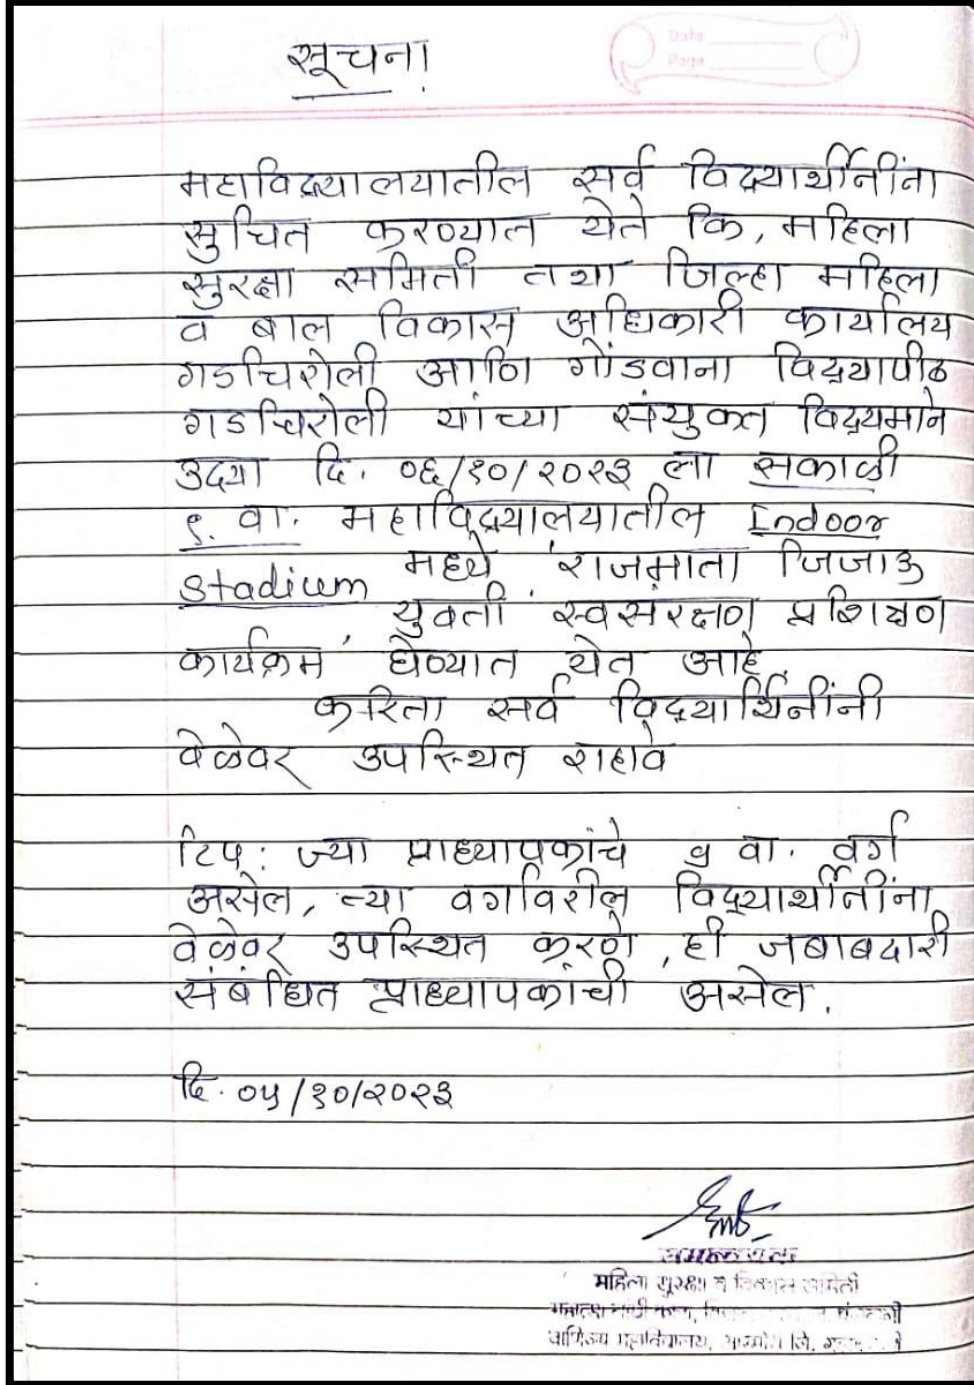 Date
Page
सूचना
महाविद्यालयातील सर्व विद्यार्थीनींना
सुचित करण्यात येते कि, महिला
सुरक्षा समिती तथा जिल्हा महिला
व बाल विकास अधिकारी कार्यालय
गडचिरोली आणि गोंडवाना विद्यापीठ
गडचिरोली यांच्या संयुक्त विद्यमाने
उद्या दि. ०६/१०/२०२३ ला सकाळी
९. वा. महाविद्यालयातील Indoor
Stadium मध्ये 'राजमाता जिजाऊ
युवती स्वसंरक्षण प्रशिक्षण
कार्यक्रम' घेण्यात येत आहे.
करिता सर्व विद्यार्थिनींनी
वेळेवर उपस्थित राहावे
टिप: ज्या प्राध्यापकांचे ९ वा. वर्ग
असेल, त्या वर्गावरील विद्यार्थीनींना
वेळेवर उपस्थित करणे, ही जबाबदारी
संबंधित प्राध्यापकांची असेल.
दि. ०५/१०/२०२३
समन्वयक
महिला सुरक्षा व विकास समिती
वाणिज्य महाविद्यालय,